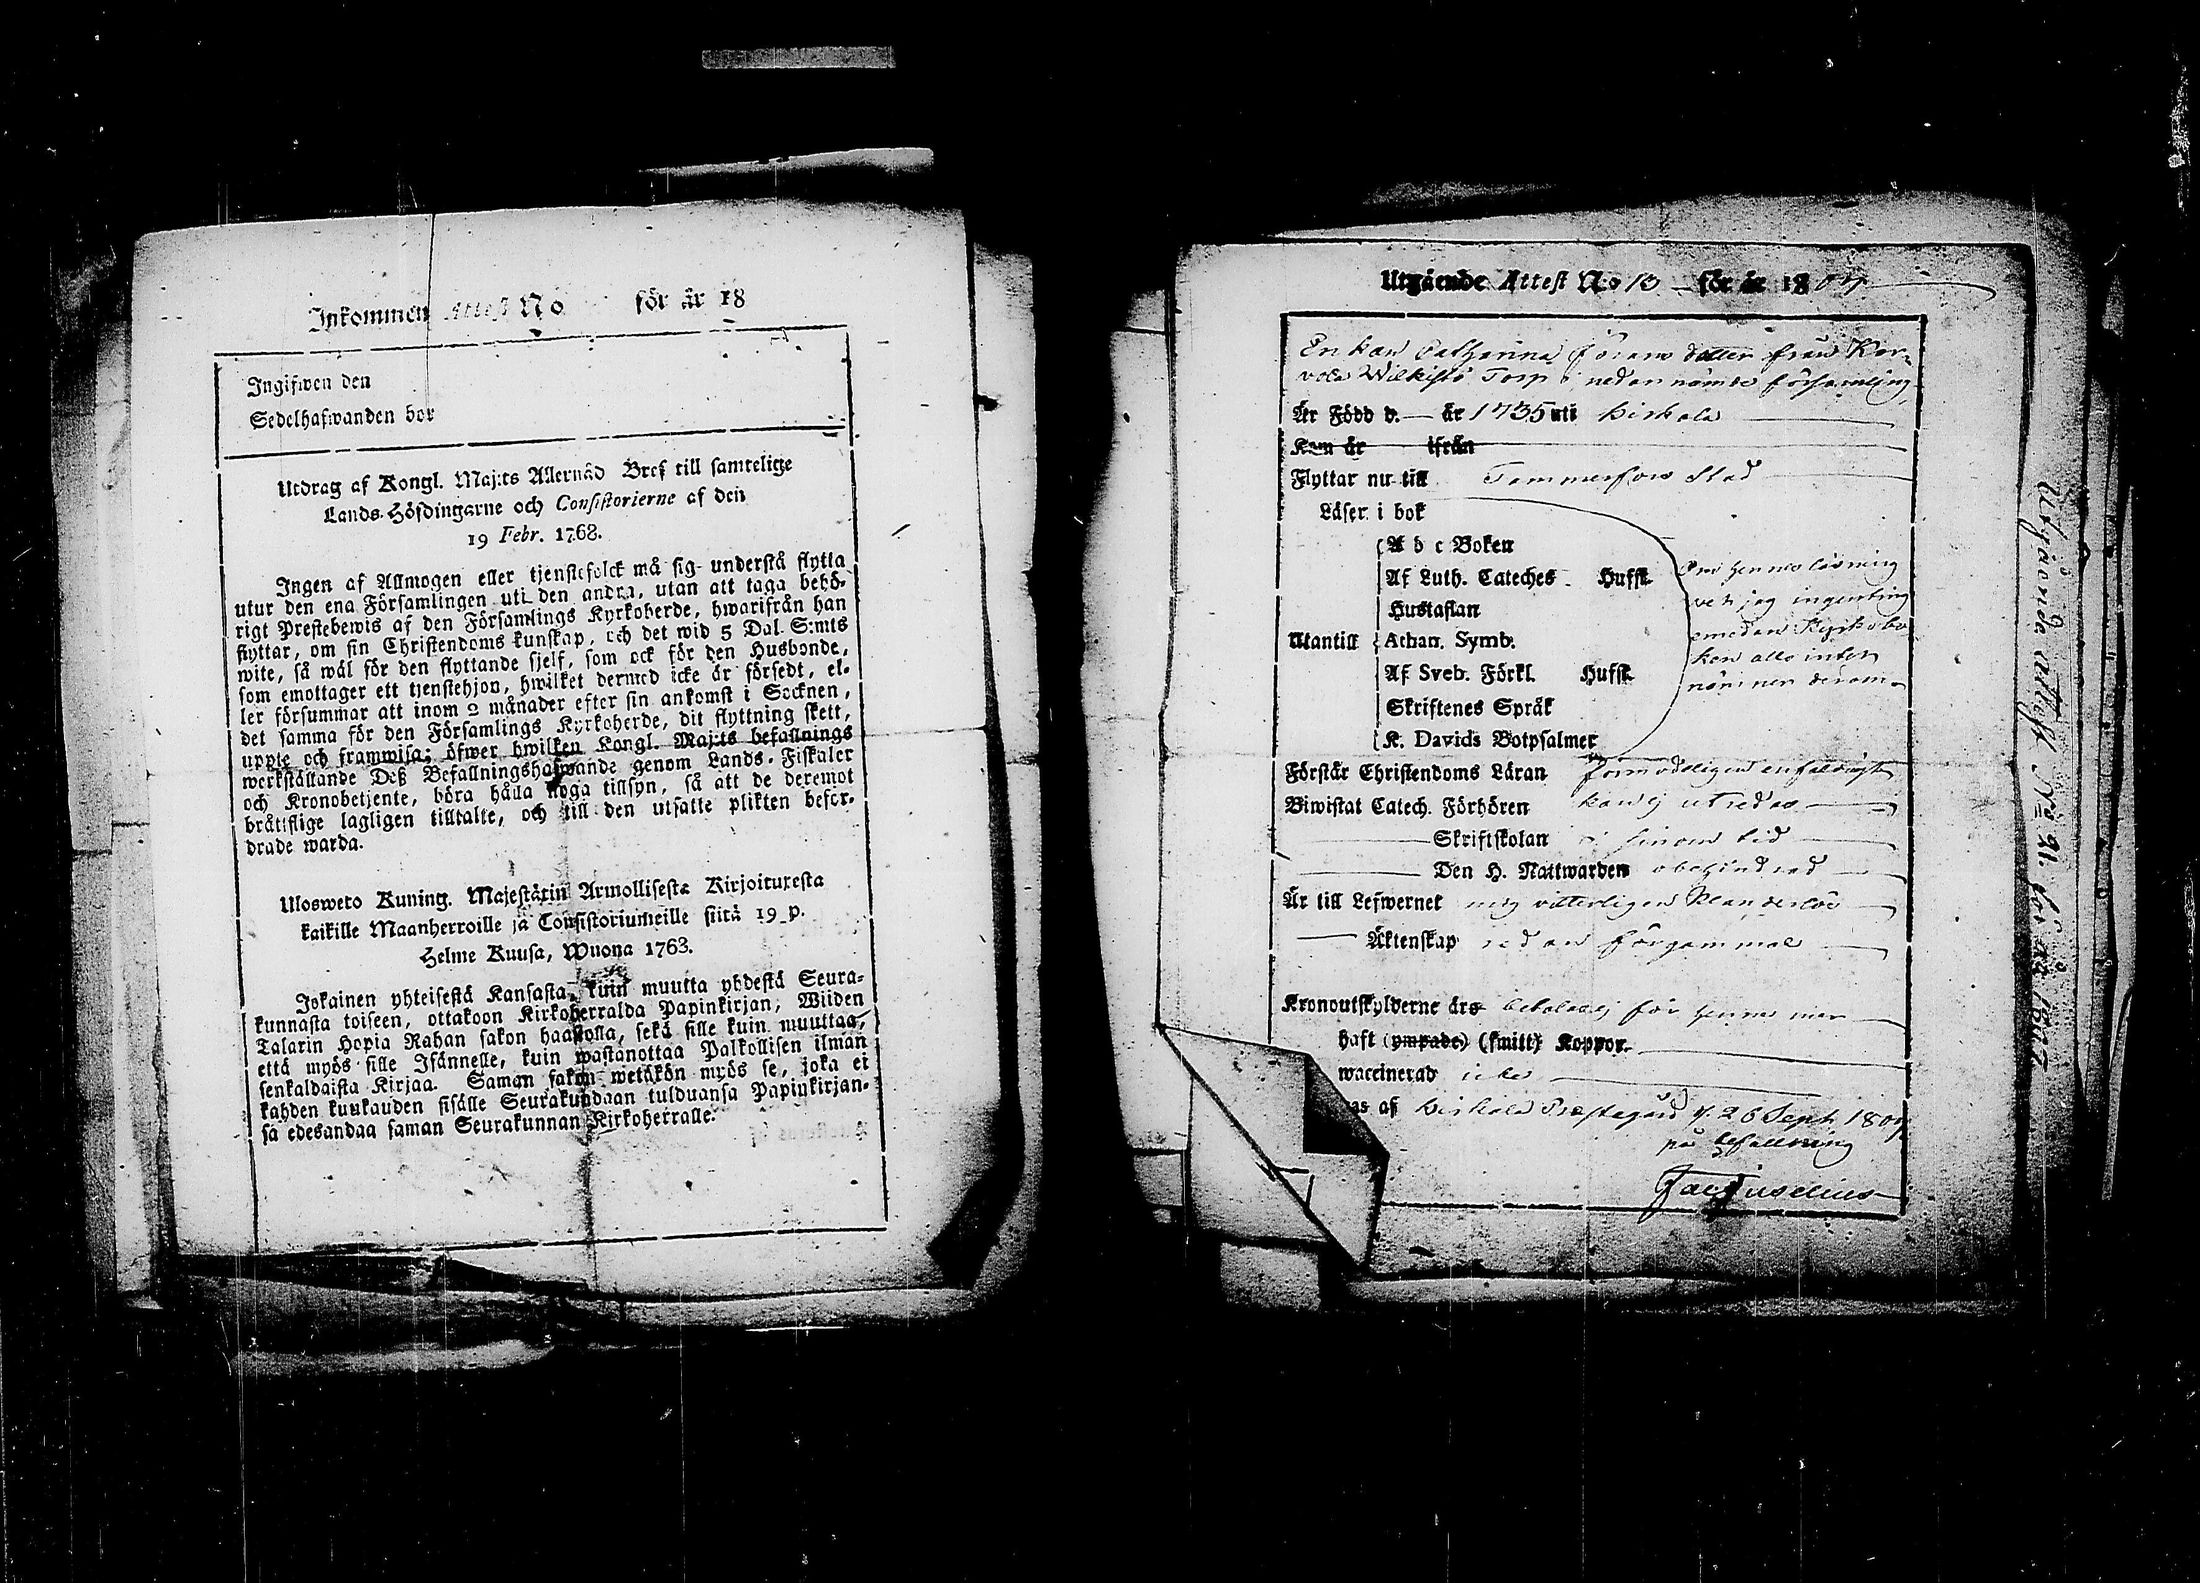 Inkommen Attest No för år 18
Ingifwen den
Sedelhafwanden bor
Utdrag af Kongl. Maj:ts Allernåd Bref till samtelige
Lands-Höfdingarne och Consistorierne af den
19 Febr. 1768.
Ingen af Allmogen eller tjenstefolck må sig understå flytta
utur den ena Församlingen uti den andra, utan att taga behö-
rigt Prestebewis af den Församlings Kyrkoherde, hwarifrån han
flyttar, om sin Christendoms kunskap, och det wid 5 Dal. S:mts
wite, så wäl för den flyttande sjelf, som ock för den Husbonde,
som emottager ett tjenstehjon, hwilket dermed icke är försedt, el-
ler försummar att inom 2 månader efter sin ankomst i Socknen,
det samma för den Församlings Kyrkoherde, dit flyttning skett,
uppte och framwisa; öfwer hwilken Kongl. Maj:ts befallnings
werkställande Deß Befallningshafwande genom Lands-Fiskaler
och Kronobetjente, böra hålla noga tillsyn, så att de deremot
bråttslige lagligen tilltalte, och till den utsatte plikten befor-
drade warda.
Ulosweto Kuning. Majestätin Armollisesta Kirjoituxesta
kaikille Maanherroille ja Consistoriumeille siitä 19 p.
Helme Kuusa, Wuona 1763.
Jokainen yhteisestä Kansasta, kuin muutta yhdestä Seura-
kunnasta toiseen, ottakoon Kirkoherralda Papinkirjan, Wiiden
Talarin Hopia Rahan sakon haastolla, sekä sille kuin muuttaa,
että myös sille Isännelle, kuin wastanottaa Palkollisen ilman
senkaldaista Kirjaa. Saman sakon wetäkön myös se, joka ei
kahden kuukauden sisälle Seurakundaan tulduansa Papinkirjan-
sa edesandaa saman Seurakunnan Kirkoherralle.
Utgående Attest No 13 för år 1807
Enkan Catharina Jörans dotter från Kor-
vola Wilkistö Torp i nedannämde församling
Är Född d. — år 1735 uti Kiskala
Kom år ifrån
Flyttar nu till Tammerfors Stad
Läser i bok
A b c Boken
Af Luth. Cateches Hufst. Om hennes läsning
Hustaflan vet jag ingenting
Utantill Athan. Symb. emedan Kyrkobo
Af Sveb. Förkl. Hufst. ken alls intet
Skriftenes Språk nämner derom
K. Davids Botpsalmer
Förstår Christendoms Läran förmodeligen enfaldigt
Biwistat Catech. Förhören kan ej utredas
Skriftskolan i sinom tid
Den H. Nattwarden obehindrad
Är till Lefwernet mig vitterligen klanderlös
Äktenskap redan förgammal
Kronoutskylderne äro betalas ej för henne mer
haft (ympade) (smitt) Koppor.
waccinerad icke
as af Prestegård d. 26 Sept. 1807
på befallning
Utgående attest No 21. för år 1807